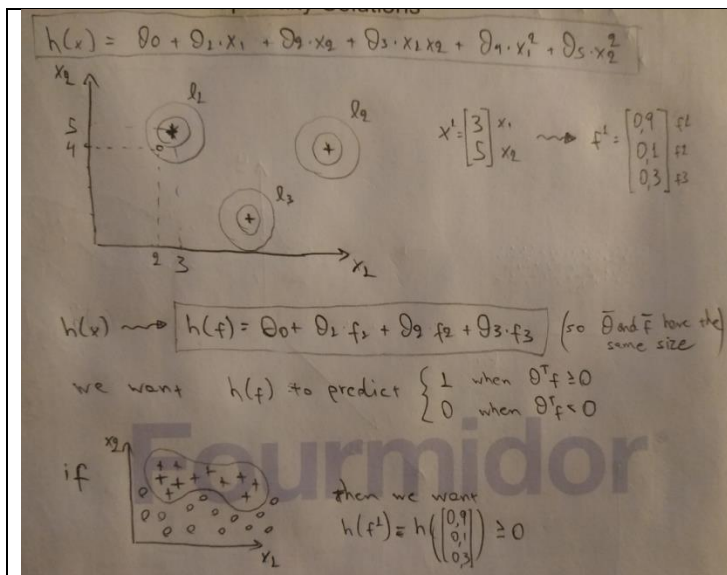 h(x) = θ0 + θ1·x1 + θ2·x2 + θ3·x1x2 + θ4·x1² + θ5·x2²
x2
l1
l2
5
4
l3
2 3
x1
x¹ = [3 5] x1 x2 ⇝ f¹ = [0,9 0,1 0,3] f1 f2 f3
h(x) ⇝ h(f) = θ0 + θ1·f1 + θ2·f2 + θ3·f3 (so θ̄ and f̄ have the same size)
we want h(f) to predict { 1 when θᵀf ≥ 0
0 when θᵀf < 0
Fourmidor
if
x2
x1
then we want
h(f¹) = h([0,9 0,1 0,3]) ≥ 0